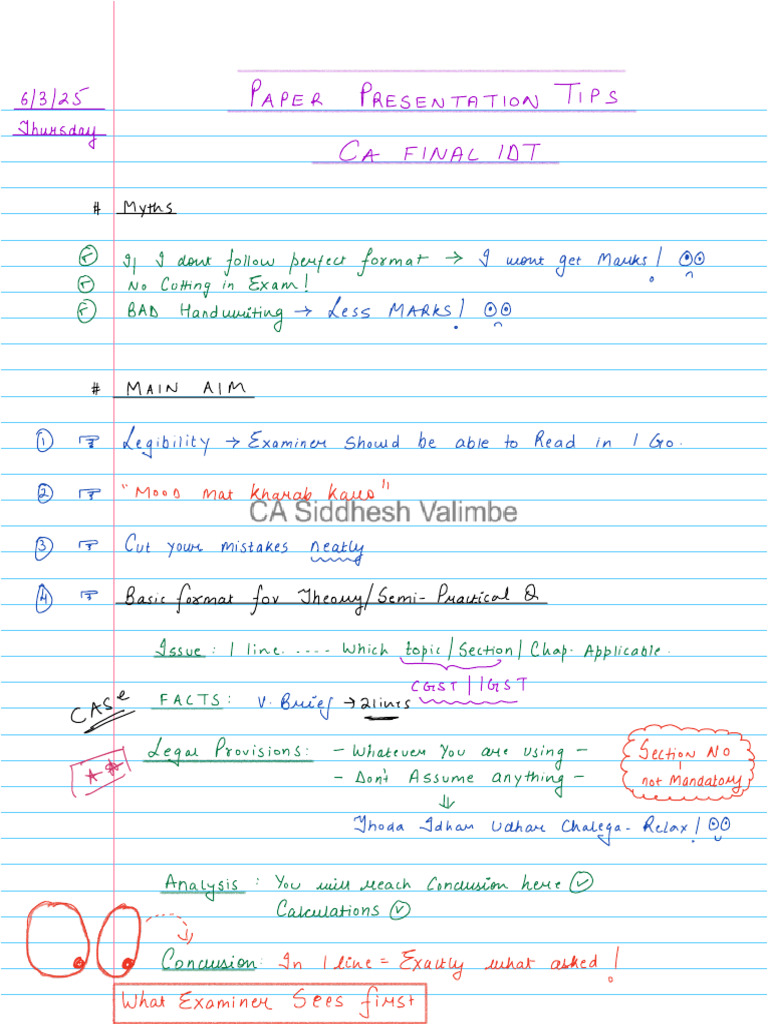 6/3/25
Thursday
PAPER PRESENTATION TIPS
CA FINAL IDT
# Myths
If I dont follow perfect format → I wont get Marks!
No Cutting in Exam!
BAD Handwriting → LESS MARKS!
# MAIN AIM
① Legibility → Examiner should be able to Read in 1 Go.
② "Mood mat Kharab Karo"
CA Siddhesh Valimbe
③ Cut your mistakes neatly
④ Basic format for Theory/Semi-Practical Q
Issue: 1 line. .... Which topic/Section/Chap. Applicable.
CGST/IGST
CASE
FACTS: V. Brief → 2 lines
Legal Provisions: - Whatever You are using -
Section No
- Don't Assume anything -
not Mandatory
Thoda Idhar Udhar Chalega - Relax!
Analysis: You will reach Conclusion here
Calculations
Conclusion: In 1 line = Exactly what asked!
What Examiner Sees first